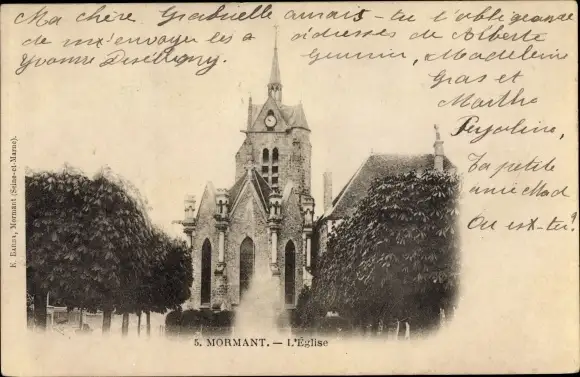 Ma chère Gabrielle aurais-tu l'obligeance
de m'envoyer les adresses de Alberte
Yvonne Gennin, Madeleine
Gras et
Marthe
La petite
amie Mad
Où es-tu?
E. Ratus, Mormant (Seine-et-Marne).
5. MORMANT. — L'Église